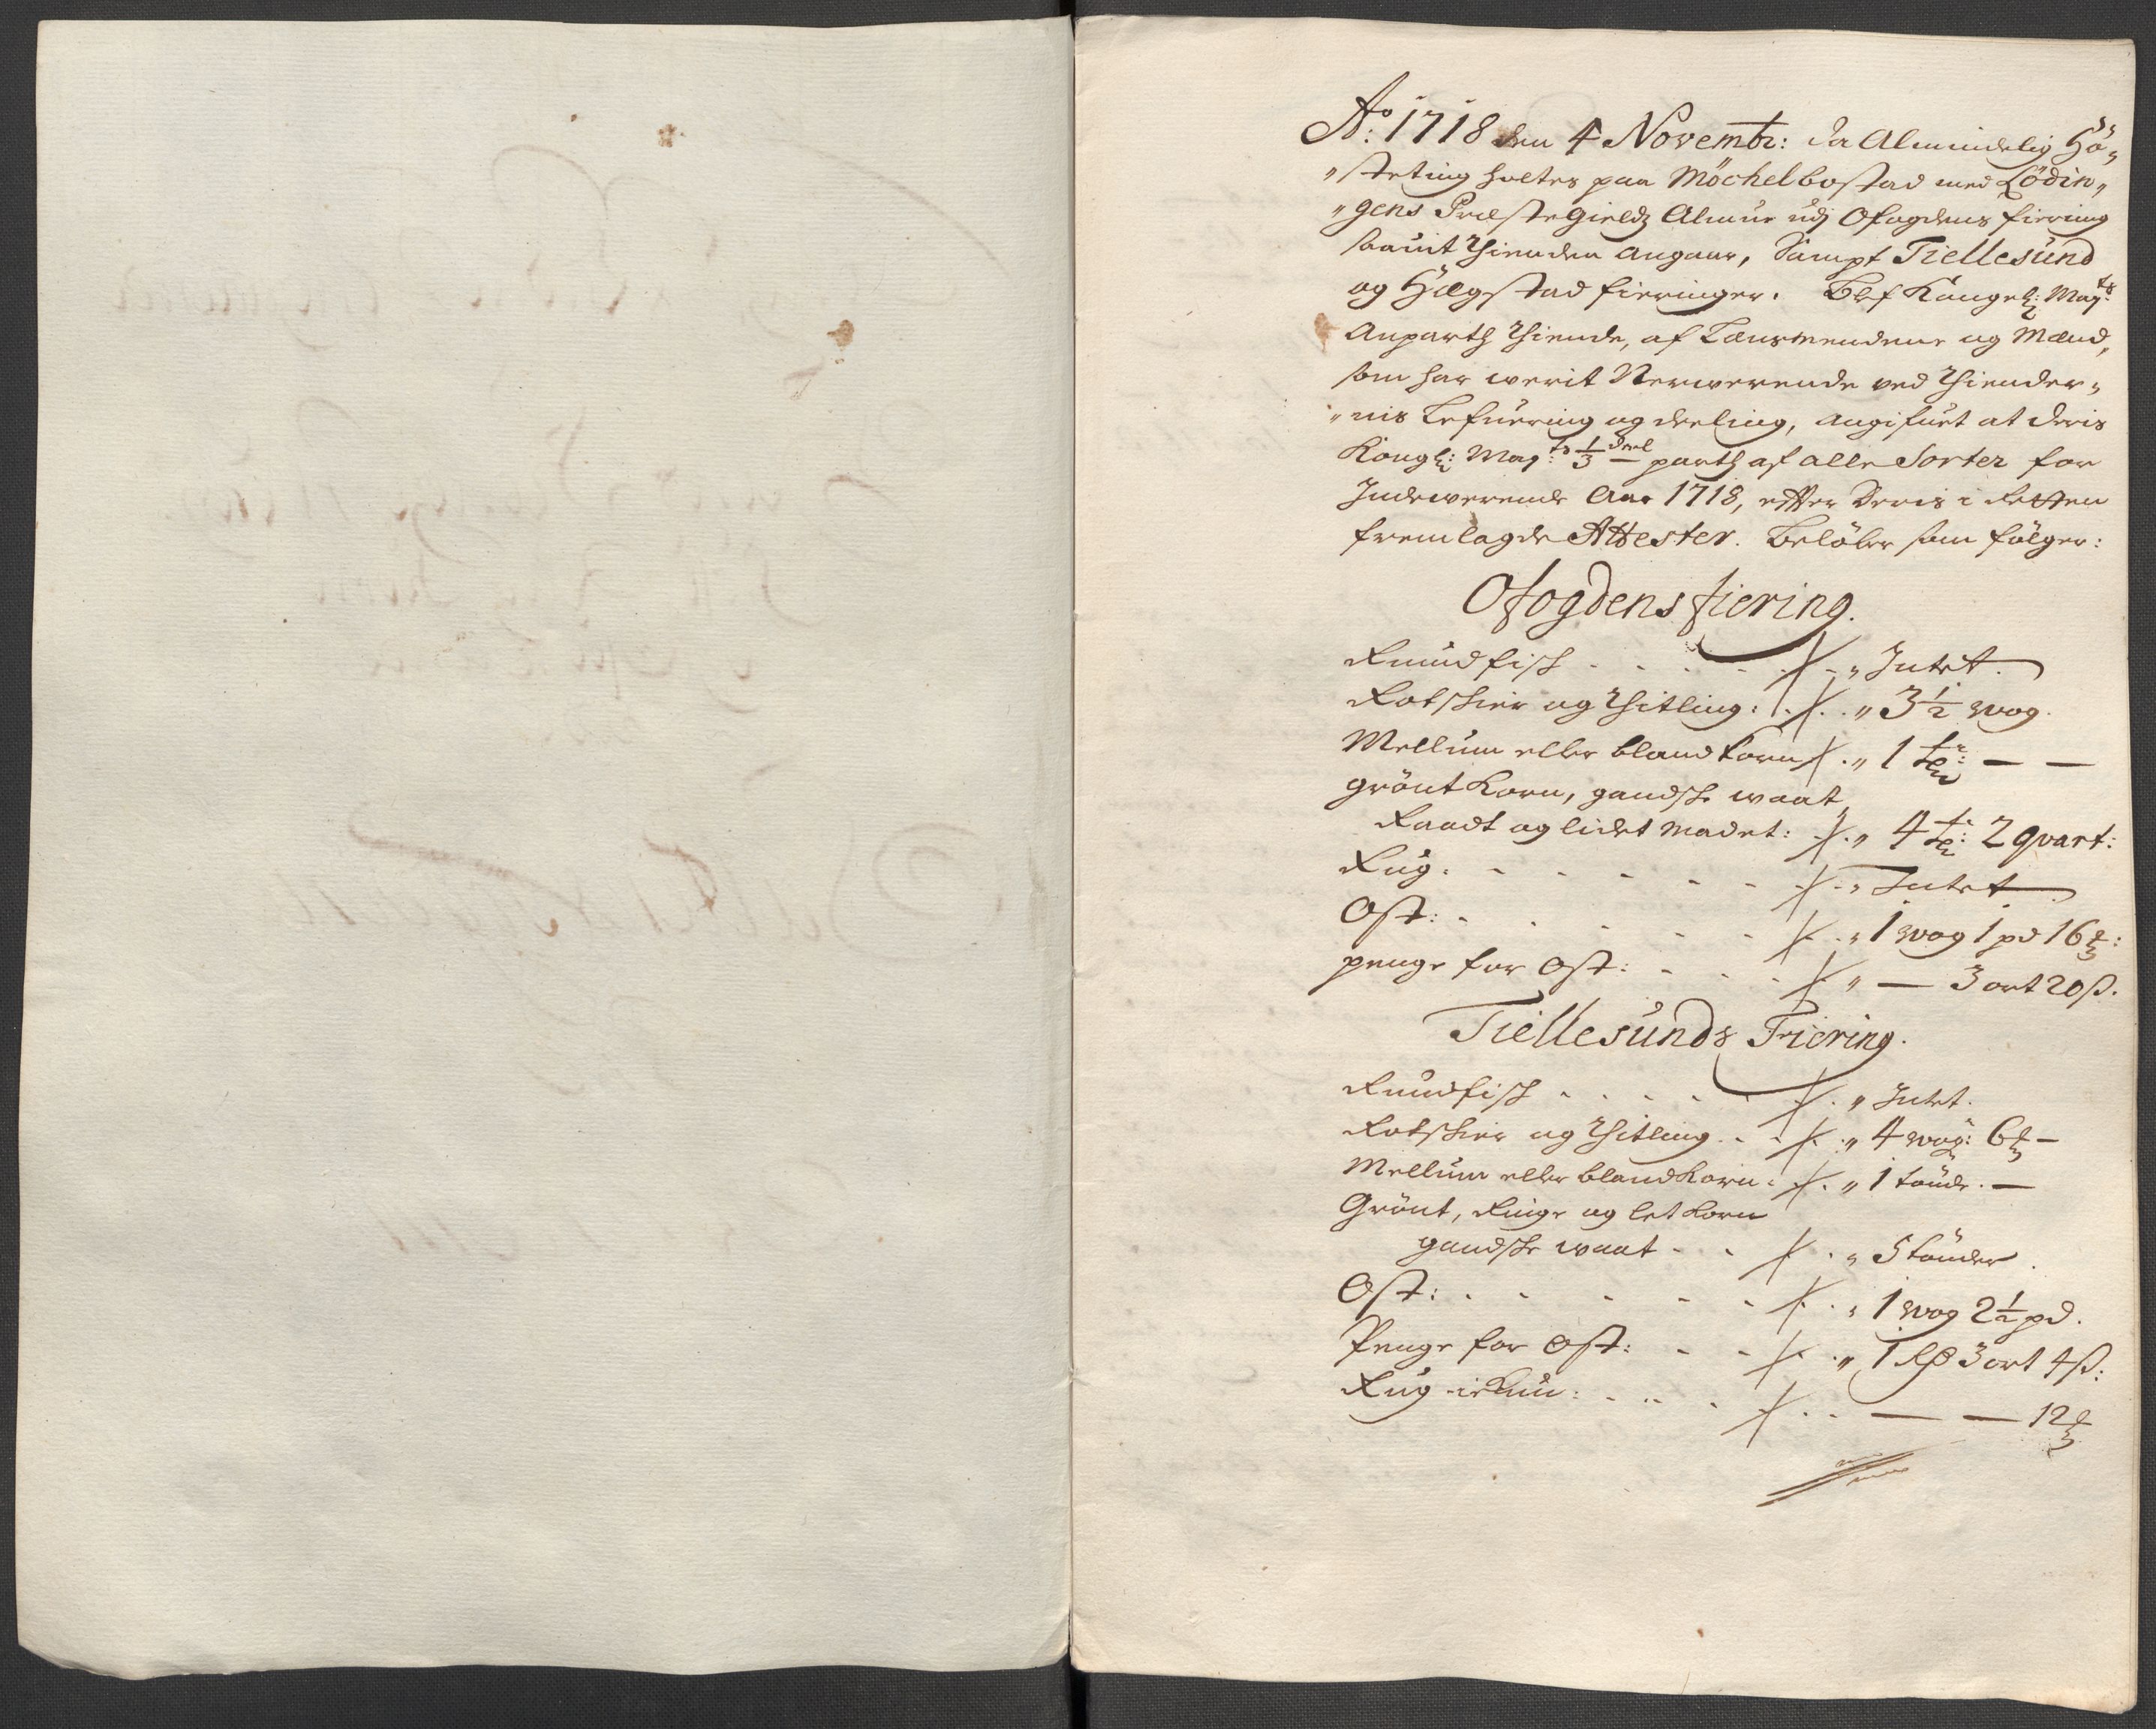 Ao: 1718 den 4 Novembr: da Almindelig Hö„
„steting holtes paa Möchelbostad med Lödin„
„gens Præste Gieldz Almue udj Ofogdens fiering
saauit Thienden angaar, Sampt Tiellesund
og Hægstad fieringer. Blef Kongel: Mayts
Anparth Thiende, af Lensmendene og Mænd,
som har werit Nerwerende ved Thiender„
„nis Lefuering og deeling, angifuet at deris
Kongl: Mayts 1/3 deel parth af alle Sorter for
Indewerende Aar 1718, efter deris i Retten
fremlagde Attester. Belöber som fölger:
Ofogdens fiering.
Rundfisk . . . . . . „ Intet.
Rotskier og Thitling: . . „ 3½ wog.
Mellum eller bland Korn . „ 1 tr: — —
grönt Korn, gandske waat,
Raadt og lidet Madet: . „ 4 tr: 2 qvart:
Rug. - - - - - - - „ Intet.
Ost: . . . . . . . „ 1 wog 1 pd 16 ℔:
penge for Ost: . . . . „ — 3 ort 20 ß.
Tiellesunds Fiering.
Rundfisk . . . . . . „ Intet.
Rotskier og Thitling . . . „ 4 wog: 6 ℔ —
Mellum eller bland Korn: . „ 1 tönde. —
Grönt, Ringe og let Korn
gandske waat - . . „ 5 tönder.
Ost: . . . . . . . „ 1 wog 2½ pd.
Penge for Ost: - - . . „ 1 Rd 3 ort 4 ß:
Rug . . . . — — 12 ℔